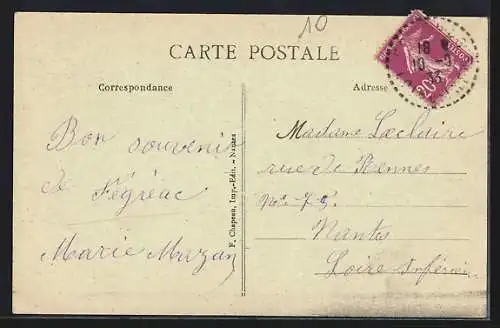 10
CARTE POSTALE
Correspondance
Adresse
18
10 - 9
33
20c
Bon souvenir
de Fégréac
Marie Mazan
F. Chapeau, Imp.-Edit. - Nantes
Madame Leclaire
rue de Rennes
Nantes
Loire Inférieure